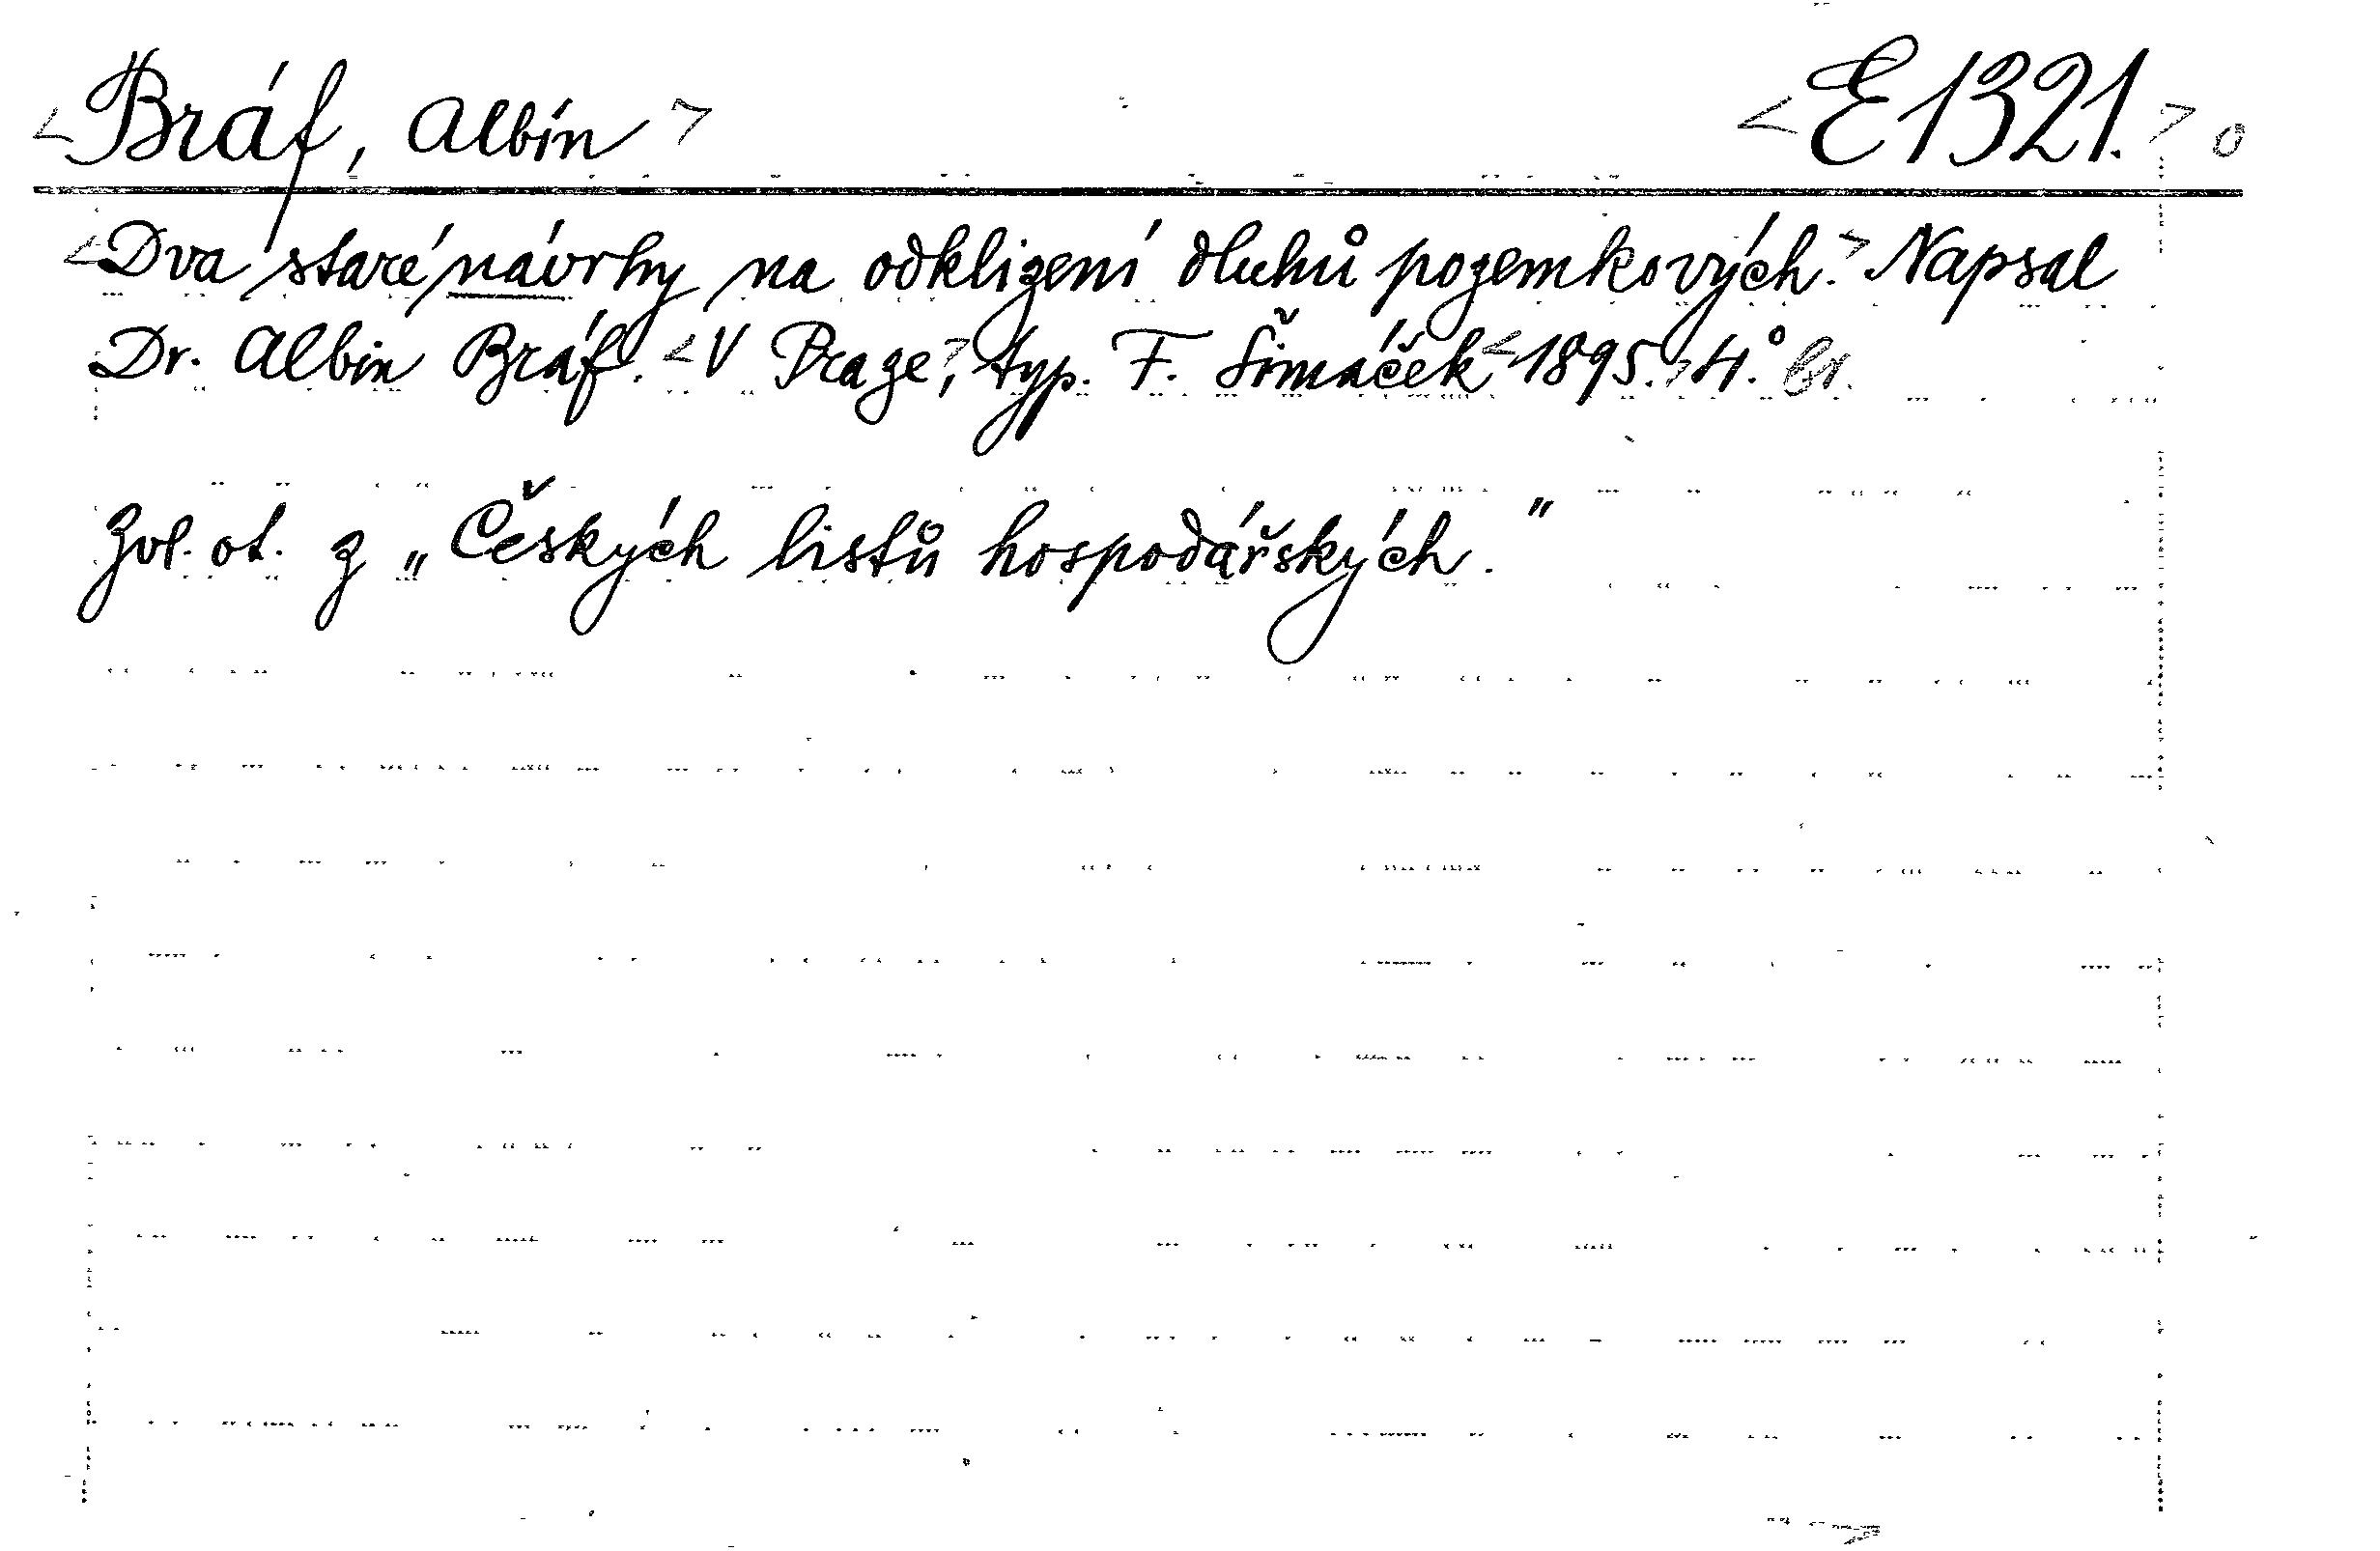 <Bráf, Albín> <E1321.> o
<Dva staré návrhy na odklizení dluhů pozemkových.> Napsal
Dr. Albín Bráf. <V Praze>, typ. F. Šimáček <1895.> 4.° br.
Zvl. ot. z „Českých listů hospodářských."